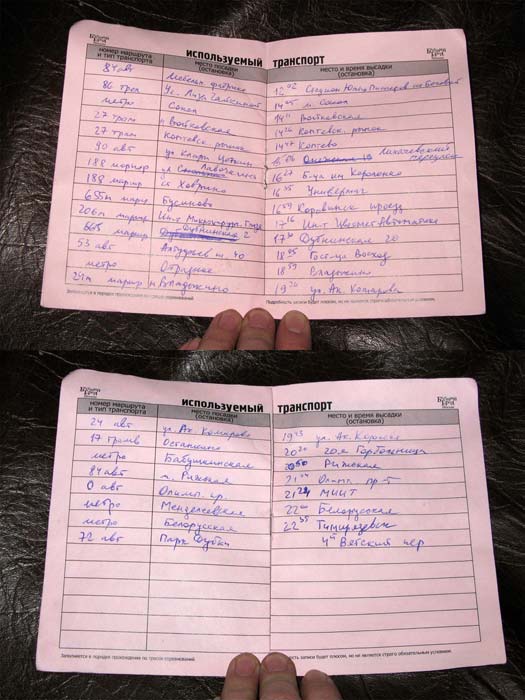 используемый транспорт
номер маршрута и тип транспорта
место посадки (остановка)
место и время высадки (остановка)
84 авт Мебельн. фабрика 13 02 Стадион Юных Пионеров
86 трол Ул. Лизы Чайкиной 14 05 м. Сокол
метро Сокол 14 11 Войковская
27 трам м Войковская 14 26 Коптевск. рынок
27 трам Коптевск. рынок 14 47 Коптево
90 авт ул Клары Цеткин Лихачевский переулок
188 маршр ул Лавочкина 16 27 Б-ца им Короленко
188 маршр ст Ховрино 16 35 Универмаг
655м марш Бусиново 16 59 Коровинск проезд
206м марш Ин-т Микрохирург. Глаза 17 16 Ин-т Цветмет Автоматика
665 маршр Дубнинская 2 17 30 Дубнинская 20
53 авт Алтуфьев ш 40 18 05 Гост-ца Восход
метро Отрадное 18 59 Владыкино
24м маршр м Владыкино 19 20 ул. Ак. Комарова
Заполняется в порядке прохождения по трассе соревнований.
Подробность записи будет плюсом, но не является строго обязательным условием.
используемый транспорт
номер маршрута и тип транспорта
место посадки (остановка)
место и время высадки (остановка)
24 авт ул. Ак Комарова 19 43 ул. Ак. Королева
17 трамв Останкино 20 20 20я Горбольница
метро Бабушкинская 20 50 Рижская
84 авт м. Рижская 21 04 Олимп. пр-т
0 авт Олимп. пр. 21 24 МИИТ
метро Менделеевская 22 Белорусская
метро Белорусская 22 35 Тимирязевск
72 авт Парк Дубки 4й Вятский пер
Заполняется в порядке прохождения по трассе соревнований.
Подробность записи будет плюсом, но не является строго обязательным условием.